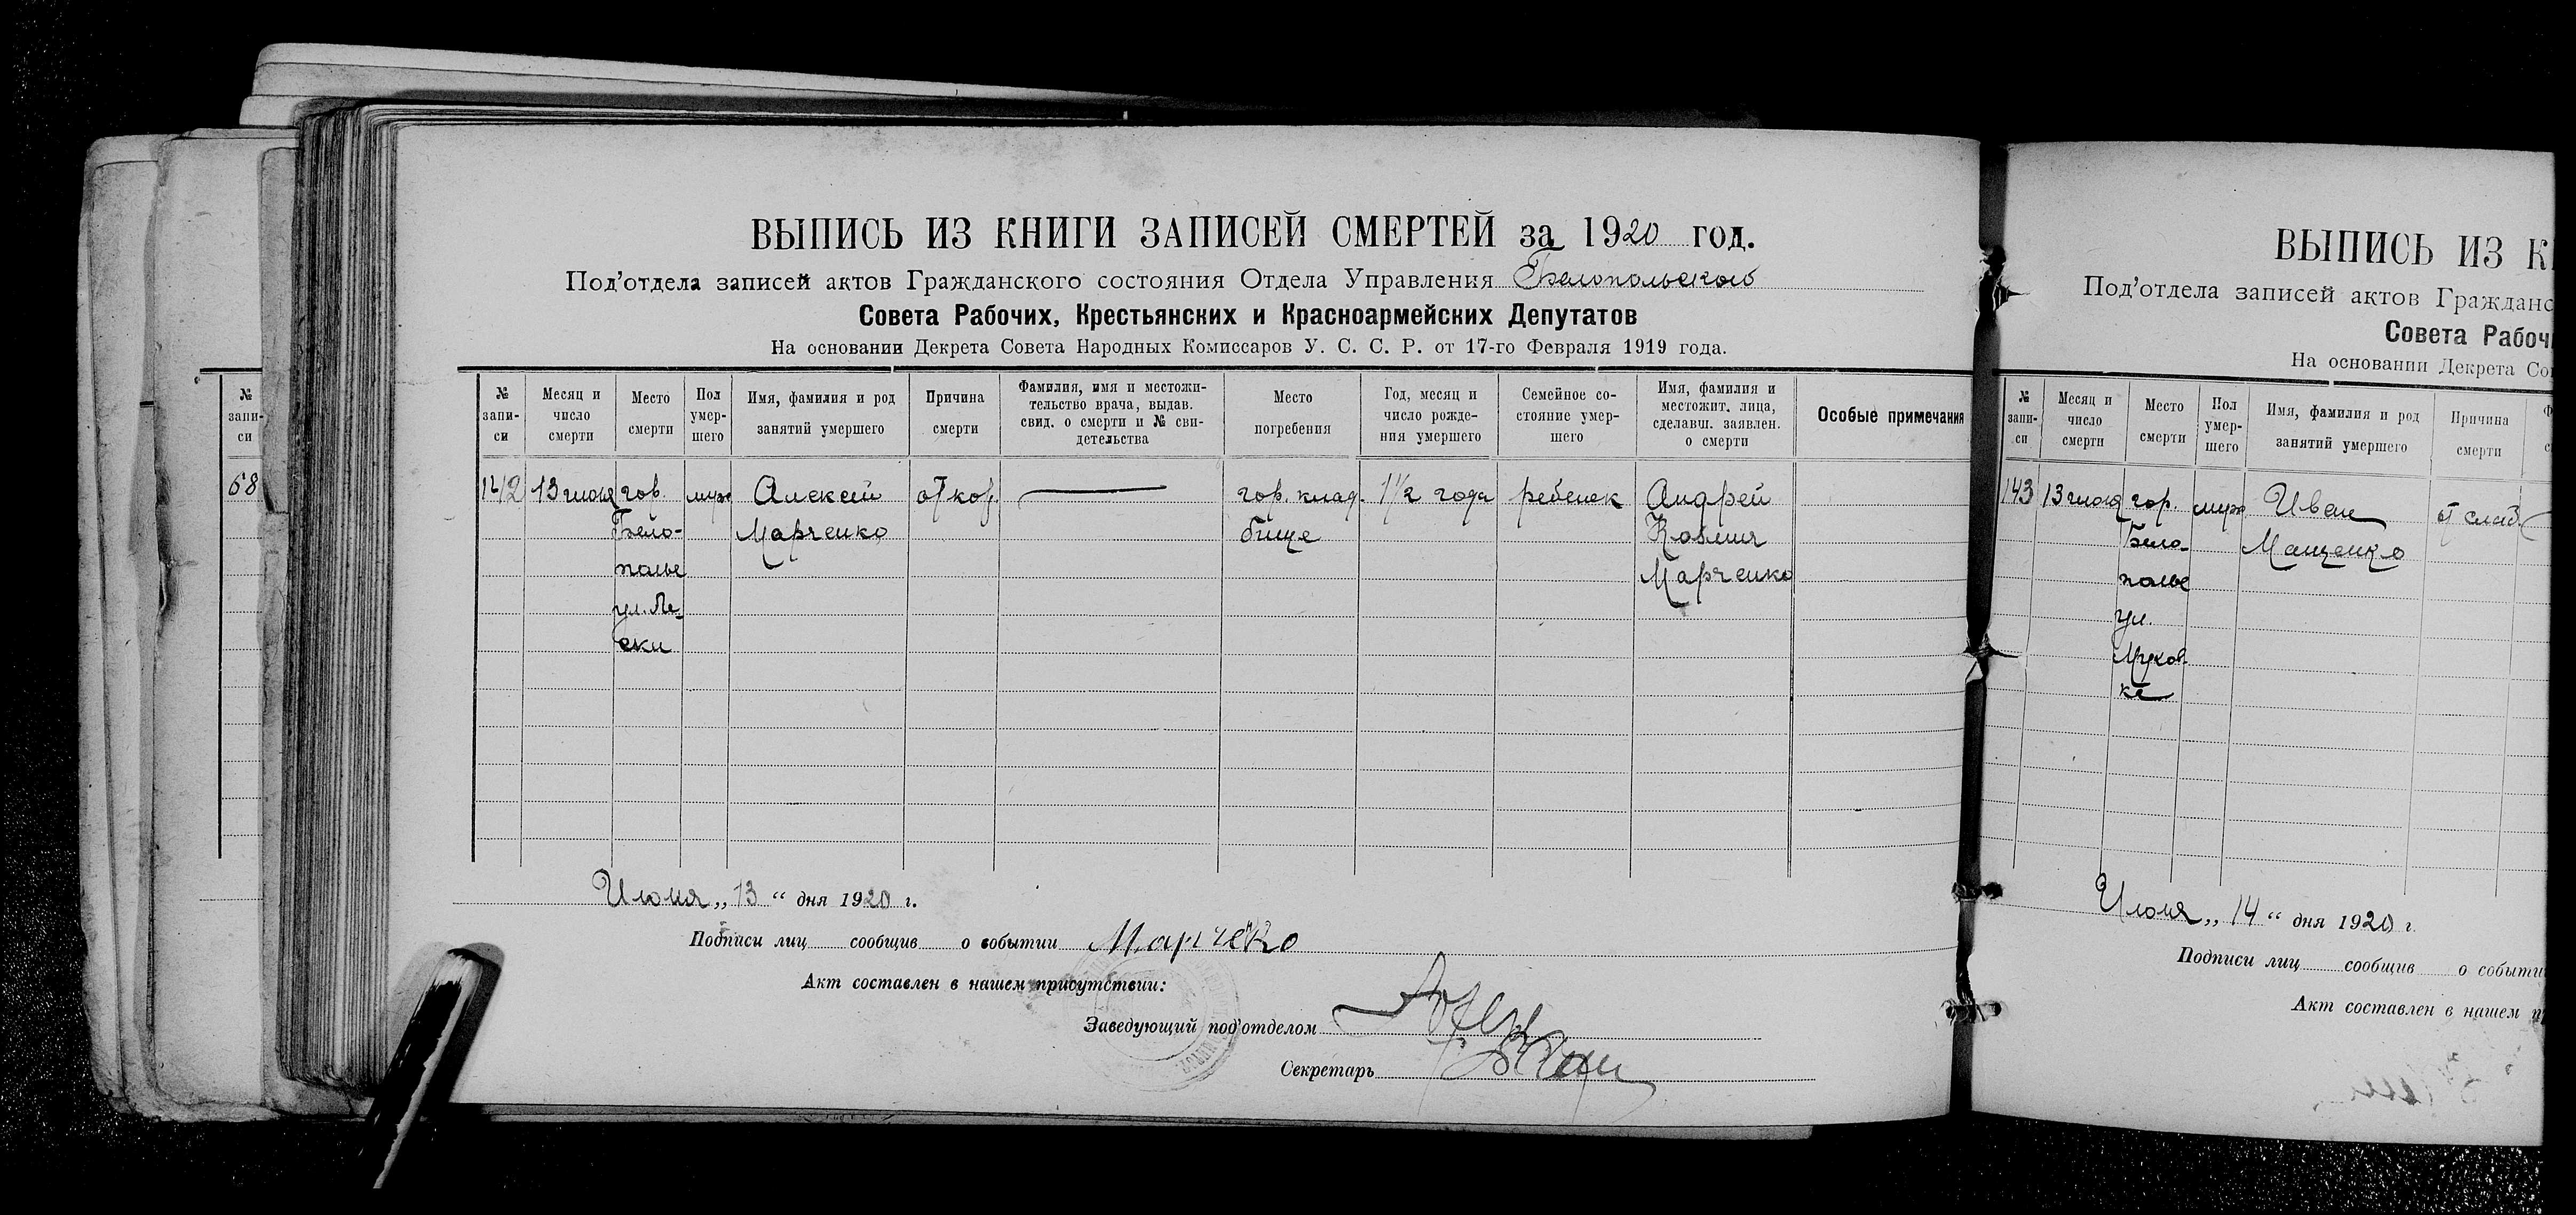 ВЫПИСЬ ИЗ КНИГИ ЗАПИСЕЙ СМЕРТЕЙ за 1920 год.
Под'отдела записей актов Гражданского состояния Отдела Управления Белопольского
Совета Рабочих, Крестьянских и Красноармейских Депутатов
На основании Декрета Совета Народных Комиссаров У. С. С. Р. от 17-го Февраля 1919 года.
№ запи-си
Месяц и число смерти
Место смерти
Пол умер-шего
Имя, фамилия и род занятий умершего
Причина смерти
Фамилия, имя и местожи-тельство врача, выдав. свид. о смерти и № сви-детельства
Место погребения
Год, месяц и число рожде-ния умершего
Семейное со-стояние умер-шего
Имя, фамилия и местожит. лица, сделавш. заявлен. о смерти
Особые примечания
142 13 июня гор. муж Алексей от кор. гор. клад- 1 1/2 года ребенек Андрей
Бело- Марченко бище
полье Марченко
ул. Пе-
ски
Июня „ 13 “ дня 1920 г.
Подписи лиц сообщив о событии Марченко
Акт составлен в нашем присутствии:
Заведующий под'отделом
Секретарь
№ запи-си
68
ВЫПИСЬ ИЗ К
Под'отдела записей актов Гражданс
Совета Рабоч
На основании Декрета Со
№ запи-си
Месяц и число смерти
Место смерти
Пол умер-шего
Имя, фамилия и род занятий умершего
Причина смерти
143 13 июня гор. муж Иван от слаб.
Бело- Мащенко
полье
ул.
ке
Июня „ 14 “ дня 1920 г.
Подписи лиц сообщив о событи
Акт составлен в нашем п